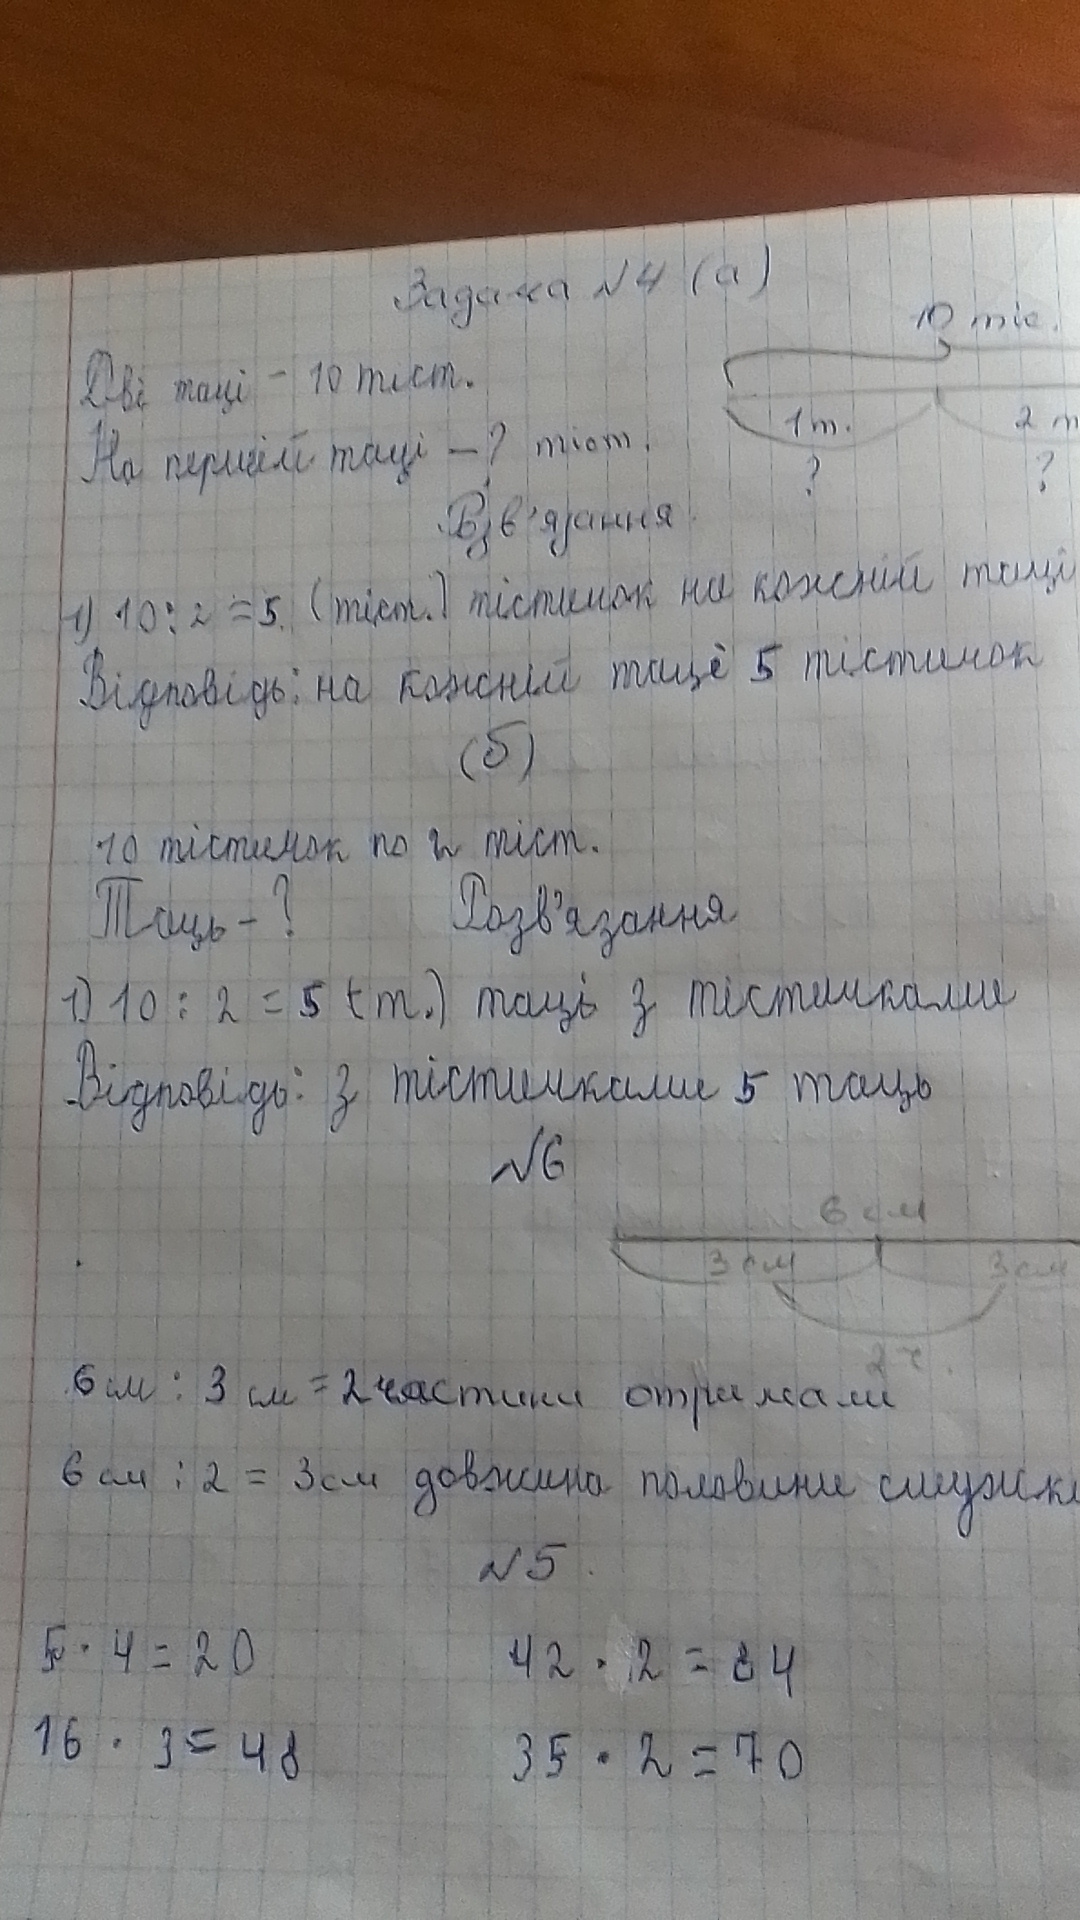 Задача №4 (а)
10 тіс.
Дві таці - 10 тіст.
1 т.
2 т
На першій таці - ? тіст.
?
?
Розв'язання
1) 10 : 2 = 5 (тіст.) тістичок на кожній таці
Відповідь: на кожній таці 5 тістичок
(б)
10 тістичок по 2 тіст.
Таць - ?
Розв'язання
1) 10 : 2 = 5 (т.) таць з тістичками
Відповідь: з тістичками 5 таць
№6
6 см
3 см
3 см
2 ч.
6 см : 3 см = 2 частини отримали
6 см : 2 = 3 см довжина половини смужки
№5.
5 · 4 = 20
42 · 2 = 84
16 · 3 = 48
35 · 2 = 70